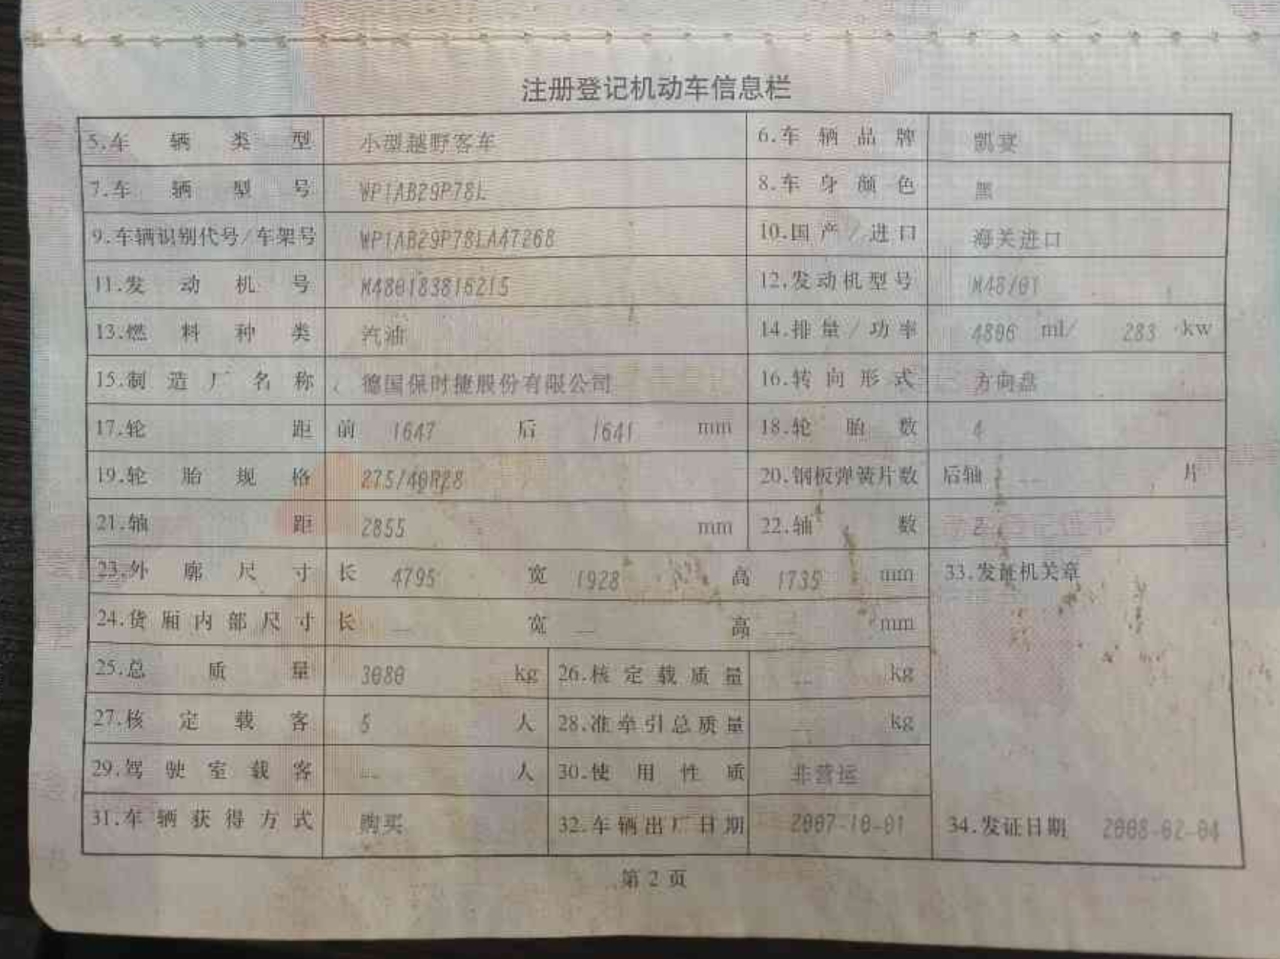 注册登记机动车信息栏
5.车辆类型 小型越野客车 6.车辆品牌 凯宴
7.车辆型号 WP1AB29P78L 8.车身颜色 黑
9.车辆识别代号/车架号 WP1AB29P78LA47268 10.国产/进口 海关进口
11.发动机号 M480183816215 12.发动机型号 M48/01
13.燃料种类 汽油 14.排量/功率 4806 ml/ 283 kw
15.制造厂名称 德国保时捷股份有限公司 16.转向形式 方向盘
17.轮距 前 1647 后 1641 mm 18.轮胎数 4
19.轮胎规格 275/40R20 20.钢板弹簧片数 后轴 -- 片
21.轴距 2855 mm 22.轴数 2
23.外廓尺寸 长 4795 宽 1928 高 1735 mm 33.发证机关章
24.货厢内部尺寸 长 -- 宽 -- 高 -- mm
25.总质量 3080 kg 26.核定载质量 -- kg
27.核定载客 5 人 28.准牵引总质量 -- kg
29.驾驶室载客 -- 人 30.使用性质 非营运
31.车辆获得方式 购买 32.车辆出厂日期 2007-10-01 34.发证日期 2008-02-04
第 2 页